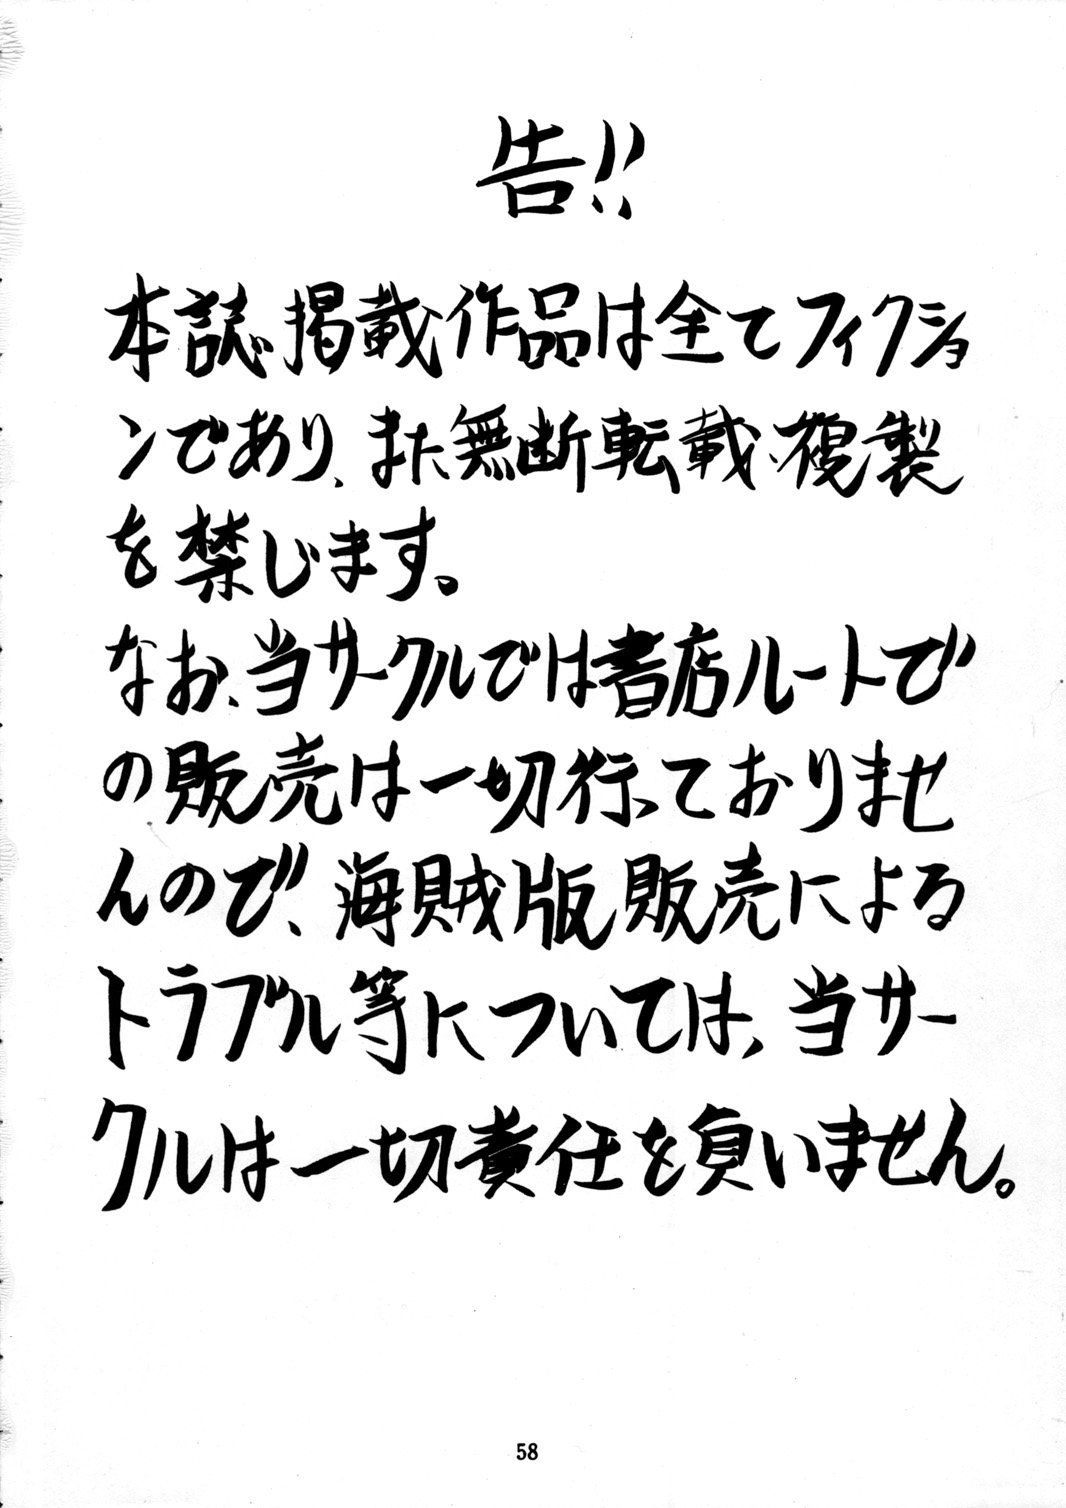 告!!
本誌掲載作品は全てフィクショ
ンであり、また無断転載、複製
を禁じます。
なお、当サークルでは書店ルートで
の販売は一切行っておりませ
んので、海賊版販売による
トラブル等については、当サー
クルは一切責任を負いません。
58